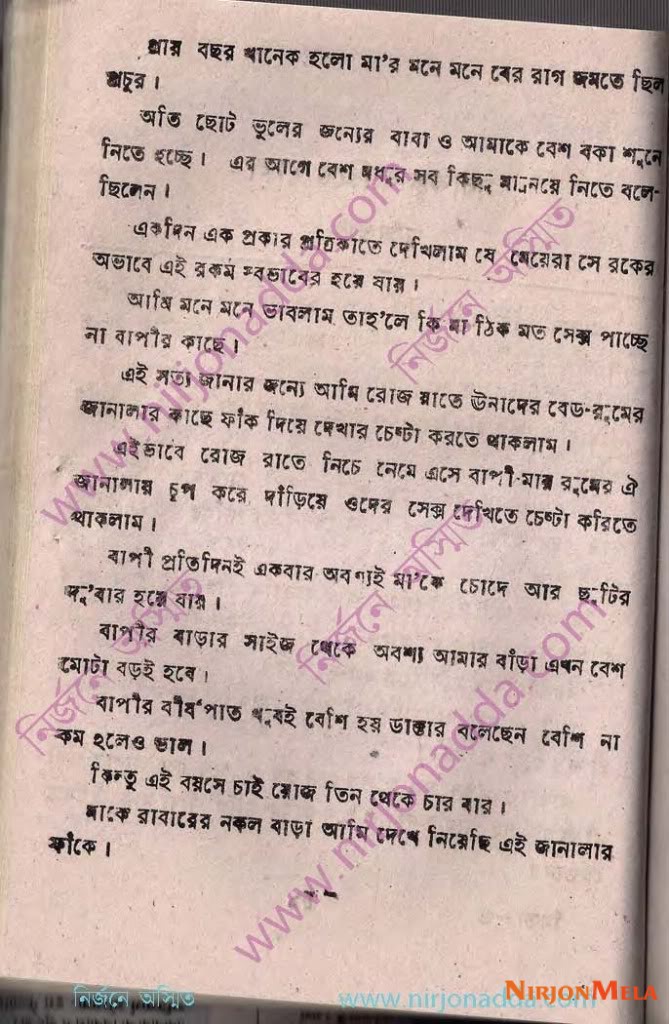 প্রায় বছর খানেক হলো মা'র মনে মনে বেশ রাগ জমতে ছিল
প্রচুর।
অতি ছোট ভুলের জন্যের বাবা ও আমাকে বেশ বকা শুনে
নিতে হচ্ছে। এর আগে বেশ মধুর সব কিছু মানিয়ে নিতে বলে-
ছিলেন।
একদিন এক প্রকার পত্রিকাতে দেখিলাম যে মেয়েরা সে রকের
অভাবে এই রকম স্বভাবের হয়ে যায়।
আমি মনে মনে ভাবলাম তাহ'লে কি মা ঠিক মত সেক্স পাচ্ছে
না বাপীর কাছে।
এই সত্য জানার জন্যে আমি রোজ রাতে উনাদের বেড-রুমের
জানালার কাছে ফাঁক দিয়ে দেখার চেষ্টা করতে থাকলাম।
এইভাবে রোজ রাতে নিচে নেমে এসে বাপী-মার রুমের ঐ
জানালায় চুপ করে দাঁড়িয়ে ওদের সেক্স দেখিতে চেষ্টা করিতে
থাকলাম।
বাপী প্রতিদিনই একবার অবশ্যই মা'কে চোদে আর ছুটির
দু'বার হয়ে যায়।
বাপীর বাড়ার সাইজ থেকে অবশ্য আমার বাঁড়া এখন বেশ
মোটা বড়ই হবে।
বাপীর বীর্ষপাত খুবই বেশি হয় ডাক্তার বলেছেন বেশি না
কম হলেও ভাল।
কিন্তু এই বয়সে চাই রোজ তিন থেকে চার বার।
মাকে রাবারের নকল বাড়া আমি দেখে নিয়েছি এই জানালার
ফাঁকে।
নির্জনে অস্মিত
www.nirjonadda.com
নির্জনে অস্মিত
www.nirjonadda.com
নির্জনে অস্মিত
নির্জনে অস্মিত
www.nirjonadda.com
NIRJONMELA